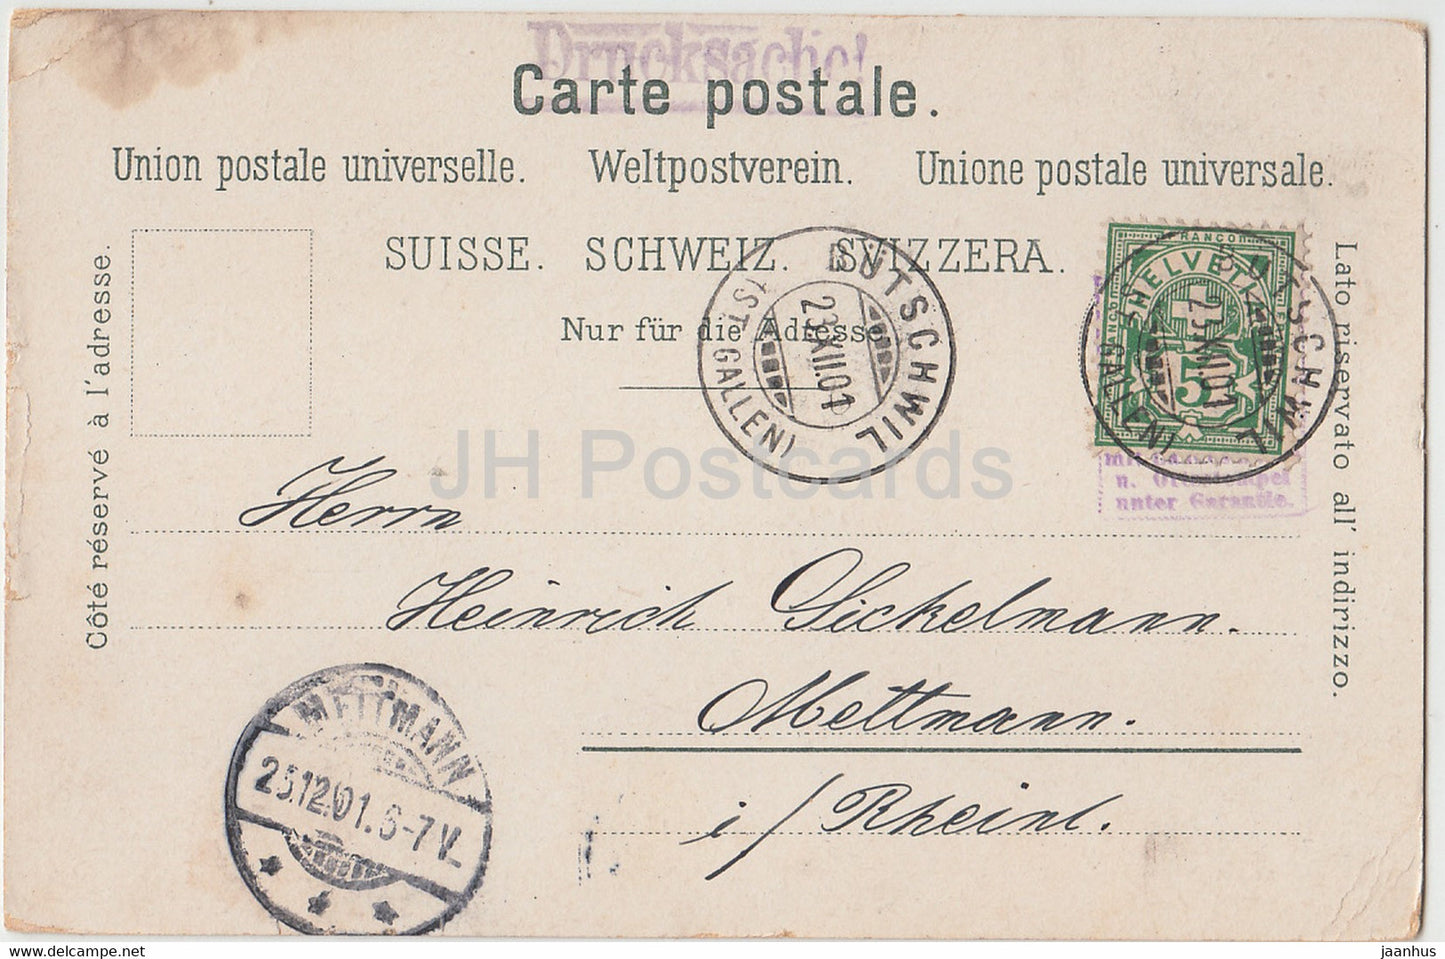 Drucksache!
Carte postale.
Union postale universelle. Weltpostverein. Unione postale universale.
SUISSE. SCHWEIZ. SVIZZERA.
Nur für die Adresse
Côté réservé à l'adresse.
Lato riservato all' indirizzo.
BÜTSCHWIL
23.XII.01
(ST. GALLEN)
FRANCO
HELVETIA
5
BÜTSCHWIL
23.XII.01
(ST. GALLEN)
n. Ortstempel
unter Garantie.
JH Postcards
Herrn
Heinrich Sickelmann.
Mettmann.
i/Rheinl.
METTMANN
25.12.01.6-7V.
www.delcampe.net
jaanhus